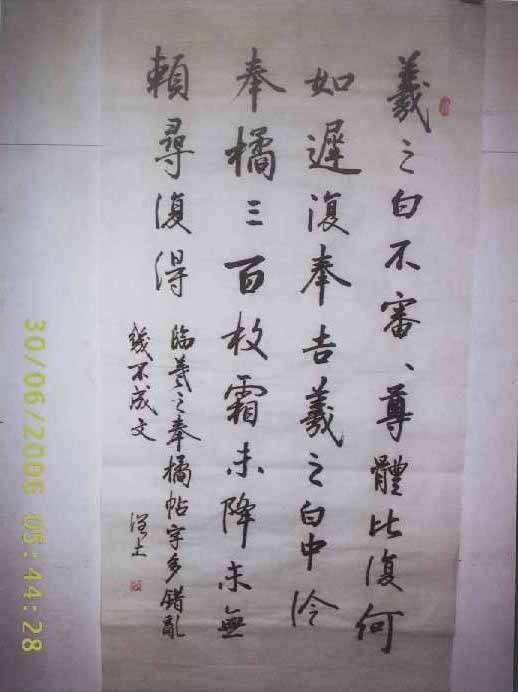 羲之白不審、尊體比復何
如遲復奉告羲之白中冷
奉橘三百枚霜未降未無
頼尋復得
臨羲之奉橘帖字多錯亂
幾不成文
30/06/2006 05:44:28